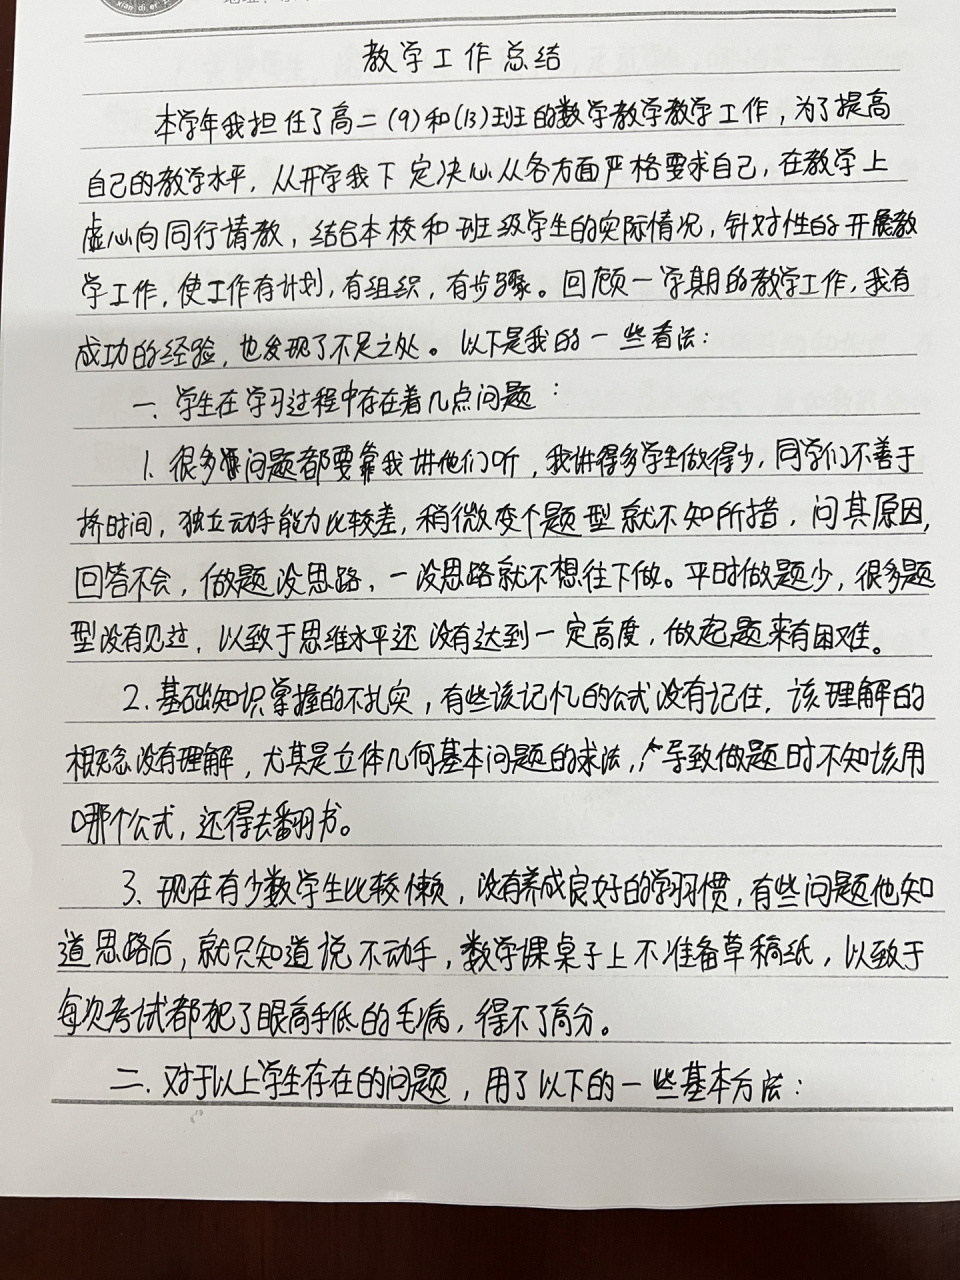 xian di er
教学工作总结
本学年我担任了高二(9)和(13)班的数学教学教学工作，为了提高
自己的教学水平，从开学我下定决心从各方面严格要求自己，在教学上
虚心向同行请教，结合本校和班级学生的实际情况，针对性的开展教
学工作，使工作有计划，有组织，有步骤。回顾一学期的教学工作，我有
成功的经验，也发现了不足之处。以下是我的一些看法：
一、学生在学习过程中存在着几点问题：
1、很多问题都要靠我讲他们听，我讲得多学生做得少，同学们不善于
挤时间，独立动手能力比较差，稍微变个题型就不知所措，问其原因，
回答不会，做题没思路，一没思路就不想往下做。平时做题少，很多题
型没有见过，以致于思维水平还没有达到一定高度，做起题来有困难。
2、基础知识掌握的不扎实，有些该记忆的公式没有记住，该理解的
概念没有理解，尤其是立体几何基本问题的求法，导致做题时不知该用
哪个公式，还得去翻书。
3、现在有少数学生比较懒，没有养成良好的学习惯，有些问题他知
道思路后，就只知道说不动手，数学课桌子上不准备草稿纸，以致于
每次考试都犯了眼高手低的毛病，得不了高分。
二、对于以上学生存在的问题，用了以下的一些基本方法：